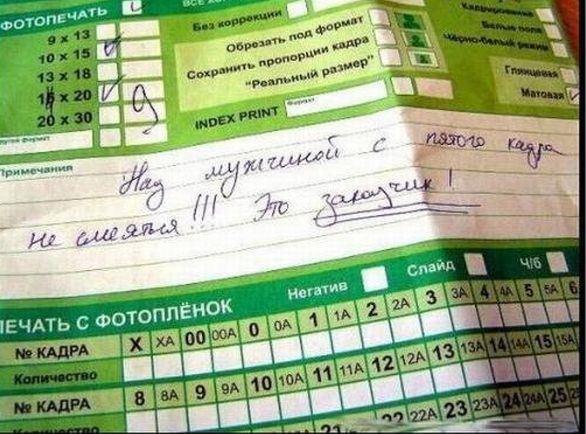 ФОТОПЕЧАТЬ
Без коррекции
9 x 13
10 x 15
13 x 18
20 x 30
9
Обрезать под формат
Сохранить пропорции кадра
"Реальный размер"
Кадрирование
Белые поля
Черно-белый режим
Глянцевая
Матовая
INDEX PRINT
Формат
Примечания
Над мужчиной с пятого кадра
не смеяться!!! Это заказчик!
ПЕЧАТЬ С ФОТОПЛЁНОК
Негатив
Слайд
Ч/б
№ КАДРА X XA 00 00A 0 0A 1 1A 2 2A 3 3A 4 4A 5 5A 6
Количество
№ КАДРА 8 8A 9 9A 10 10A 11 11A 12 12A 13 13A 14 14A 15 15A
Количество
21 22 22A 23 23A 24 24A 25